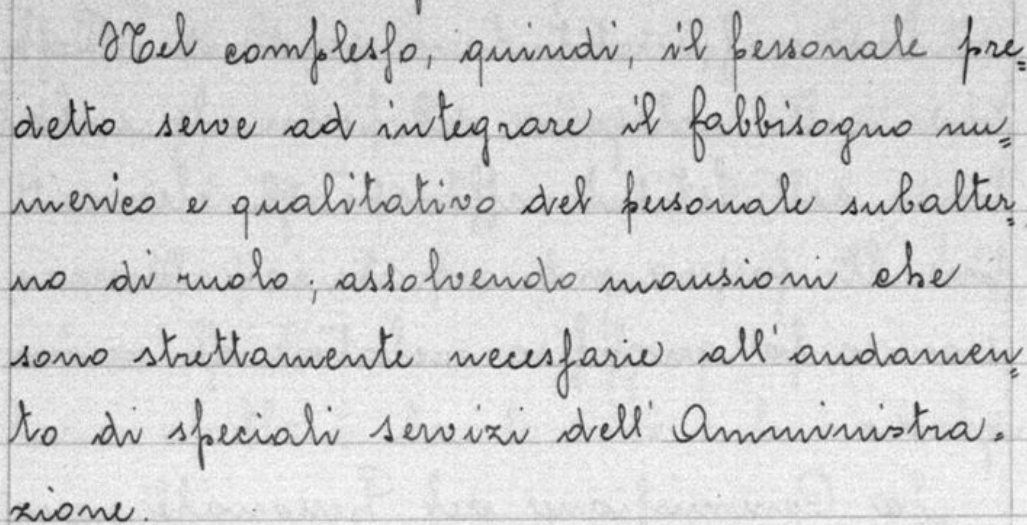 Nel complesso, quindi, il personale pre=
detto serve ad integrare il fabbisogno nu=
merico e qualitativo del personale subalter=
no di ruolo, assolvendo mansioni che
sono strettamente necessarie all'andamen=
to di speciali servizi dell'Amministra=
zione.